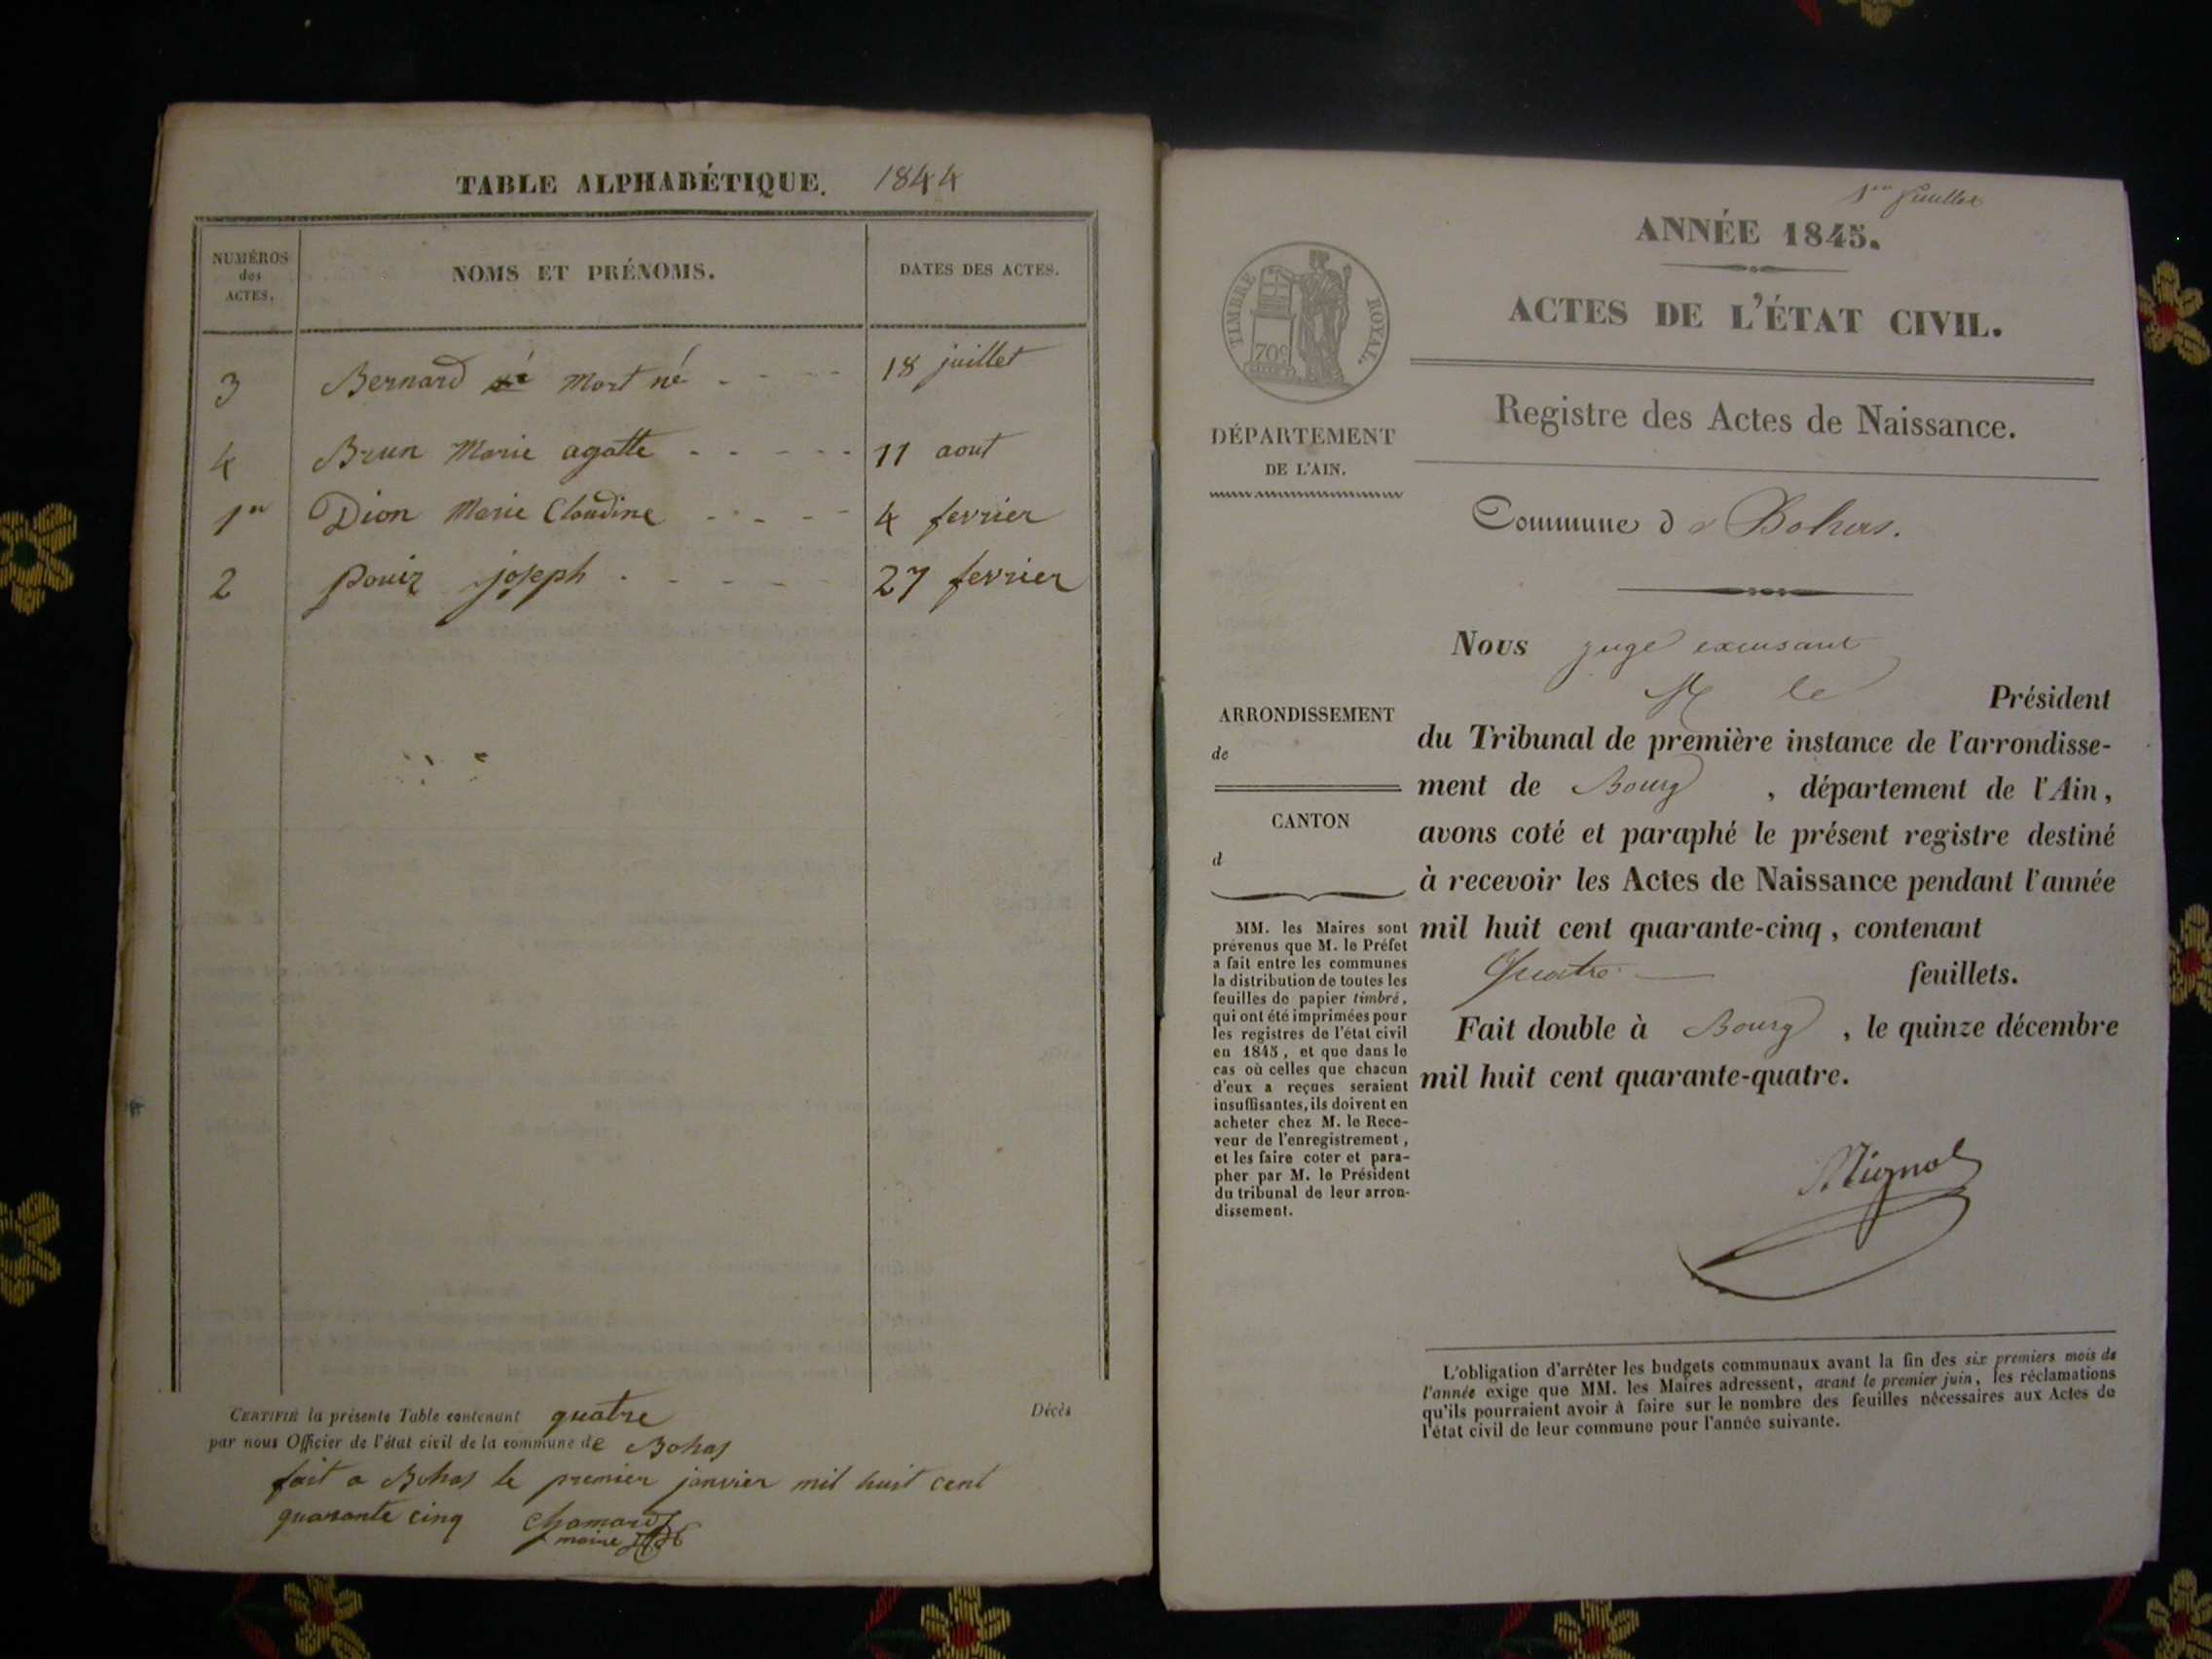 TABLE ALPHABÉTIQUE. 1844
NUMÉROS
des
ACTES.
NOMS ET PRÉNOMS.
DATES DES ACTES.
3 Bernard né Mort né 18 juillet
4 Brun Marie agatte 11 aout
1er Dion Marie Claudine 4 fevrier
2 joseph 27 fevrier
CERTIFIÉ la présente Table contenant quatre Décès
par nous Officier de l'état civil de la commune de Bohas
fait a Bohas le premier janvier mil huit cent
quarante cinq Chamard
maire
1er feuillet
ANNÉE 1845.
ACTES DE L'ÉTAT CIVIL.
TIMBRE ROYAL.
70c
DÉPARTEMENT
DE L'AIN.
Registre des Actes de Naissance.
Commune de Bohas.
Nous juge excusant
M le Président
du Tribunal de première instance de l'arrondisse-
ment de Bourg, département de l'Ain,
avons coté et paraphé le présent registre destiné
à recevoir les Actes de Naissance pendant l'année
mil huit cent quarante-cinq, contenant
Quatre feuillets.
Fait double à Bourg, le quinze décembre
mil huit cent quarante-quatre.
ARRONDISSEMENT
de
CANTON
d
MM. les Maires sont
prévenus que M. le Préfet
a fait entre les communes
la distribution de toutes les
feuilles de papier timbré,
qui ont été imprimées pour
les registres de l'état civil
en 1845, et que dans le
cas où celles que chacun
d'eux a reçues seraient
insuffisantes, ils doivent en
acheter chez M. le Rece-
veur de l'enregistrement,
et les faire coter et para-
pher par M. le Président
du tribunal de leur arron-
dissement.
L'obligation d'arrêter les budgets communaux avant la fin des six premiers mois de
l'année exige que MM. les Maires adressent, avant le premier juin, les réclamations
qu'ils pourraient avoir à faire sur le nombre des feuilles nécessaires aux Actes de
l'état civil de leur commune pour l'année suivante.